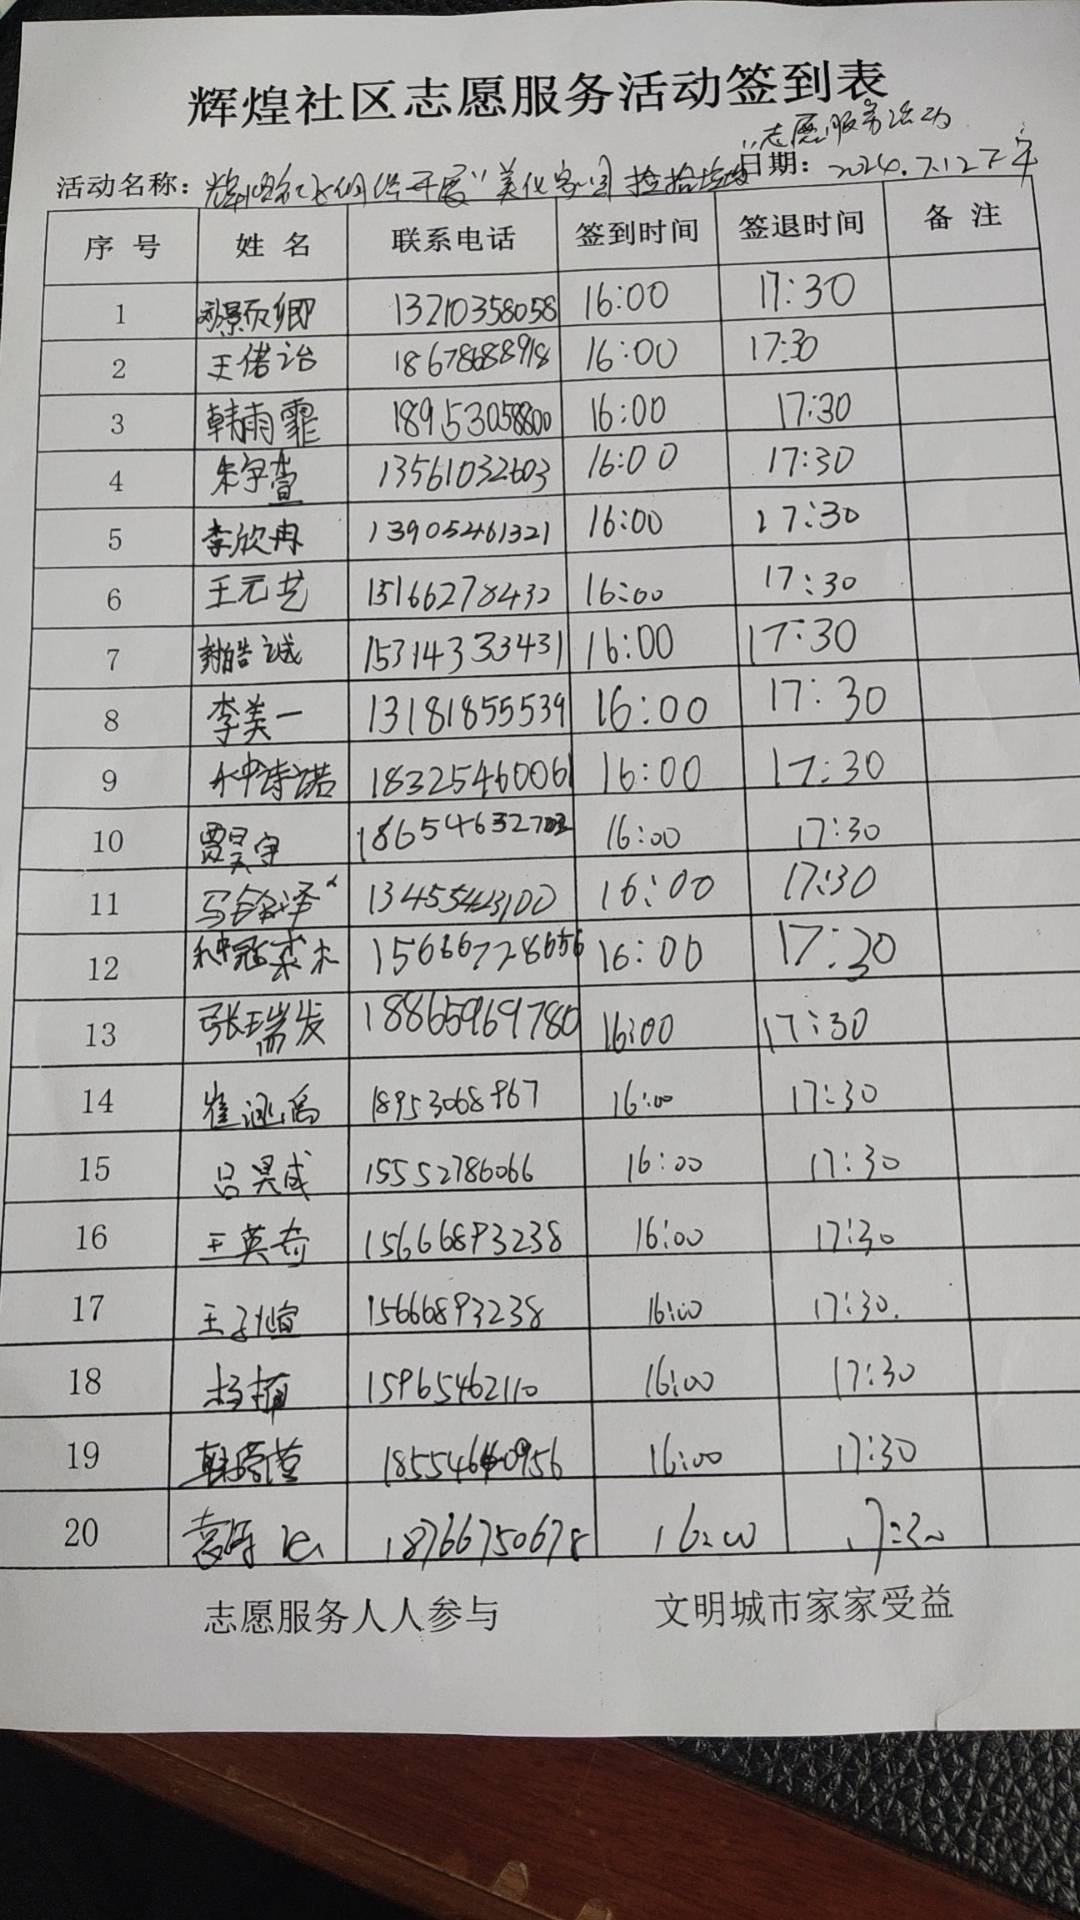 辉煌社区志愿服务活动签到表
志愿服务活动
活动名称：辉煌社区组织开展“美化家园 捡拾垃圾” 日期：2024.7.12下午
序号 姓名 联系电话 签到时间 签退时间 备注
1 13210358058 16:00 17:30
2 王偌冶 18678688918 16:00 17:30
3 韩雨霏 18953058800 16:00 17:30
4 朱宇萱 13561032603 16:00 17:30
5 李欣冉 13905461321 16:00 17:30
6 王元艺 15166278432 16:00 17:30
7 皓诚 15314333431 16:00 17:30
8 李美一 13181855539 16:00 17:30
9 钟诗诺 18325460061 16:00 17:30
10 贾昊宇 16:00 17:30
11 16:00 17:30
12 15666728656 16:00 17:30
13 张瑞发 18865969780 16:00 17:30
14 崔涵禹 18953068967 16:00 17:30
15 吕昊成 15552786066 16:00 17:30
16 王英奇 15666893238 16:00 17:30
17 王子煊 15666893238 16:00 17:30.
18 杨楠 15965462110 16:00 17:30
19 16:00 17:30
20 18766750678 16:00 17:30
志愿服务人人参与 文明城市家家受益